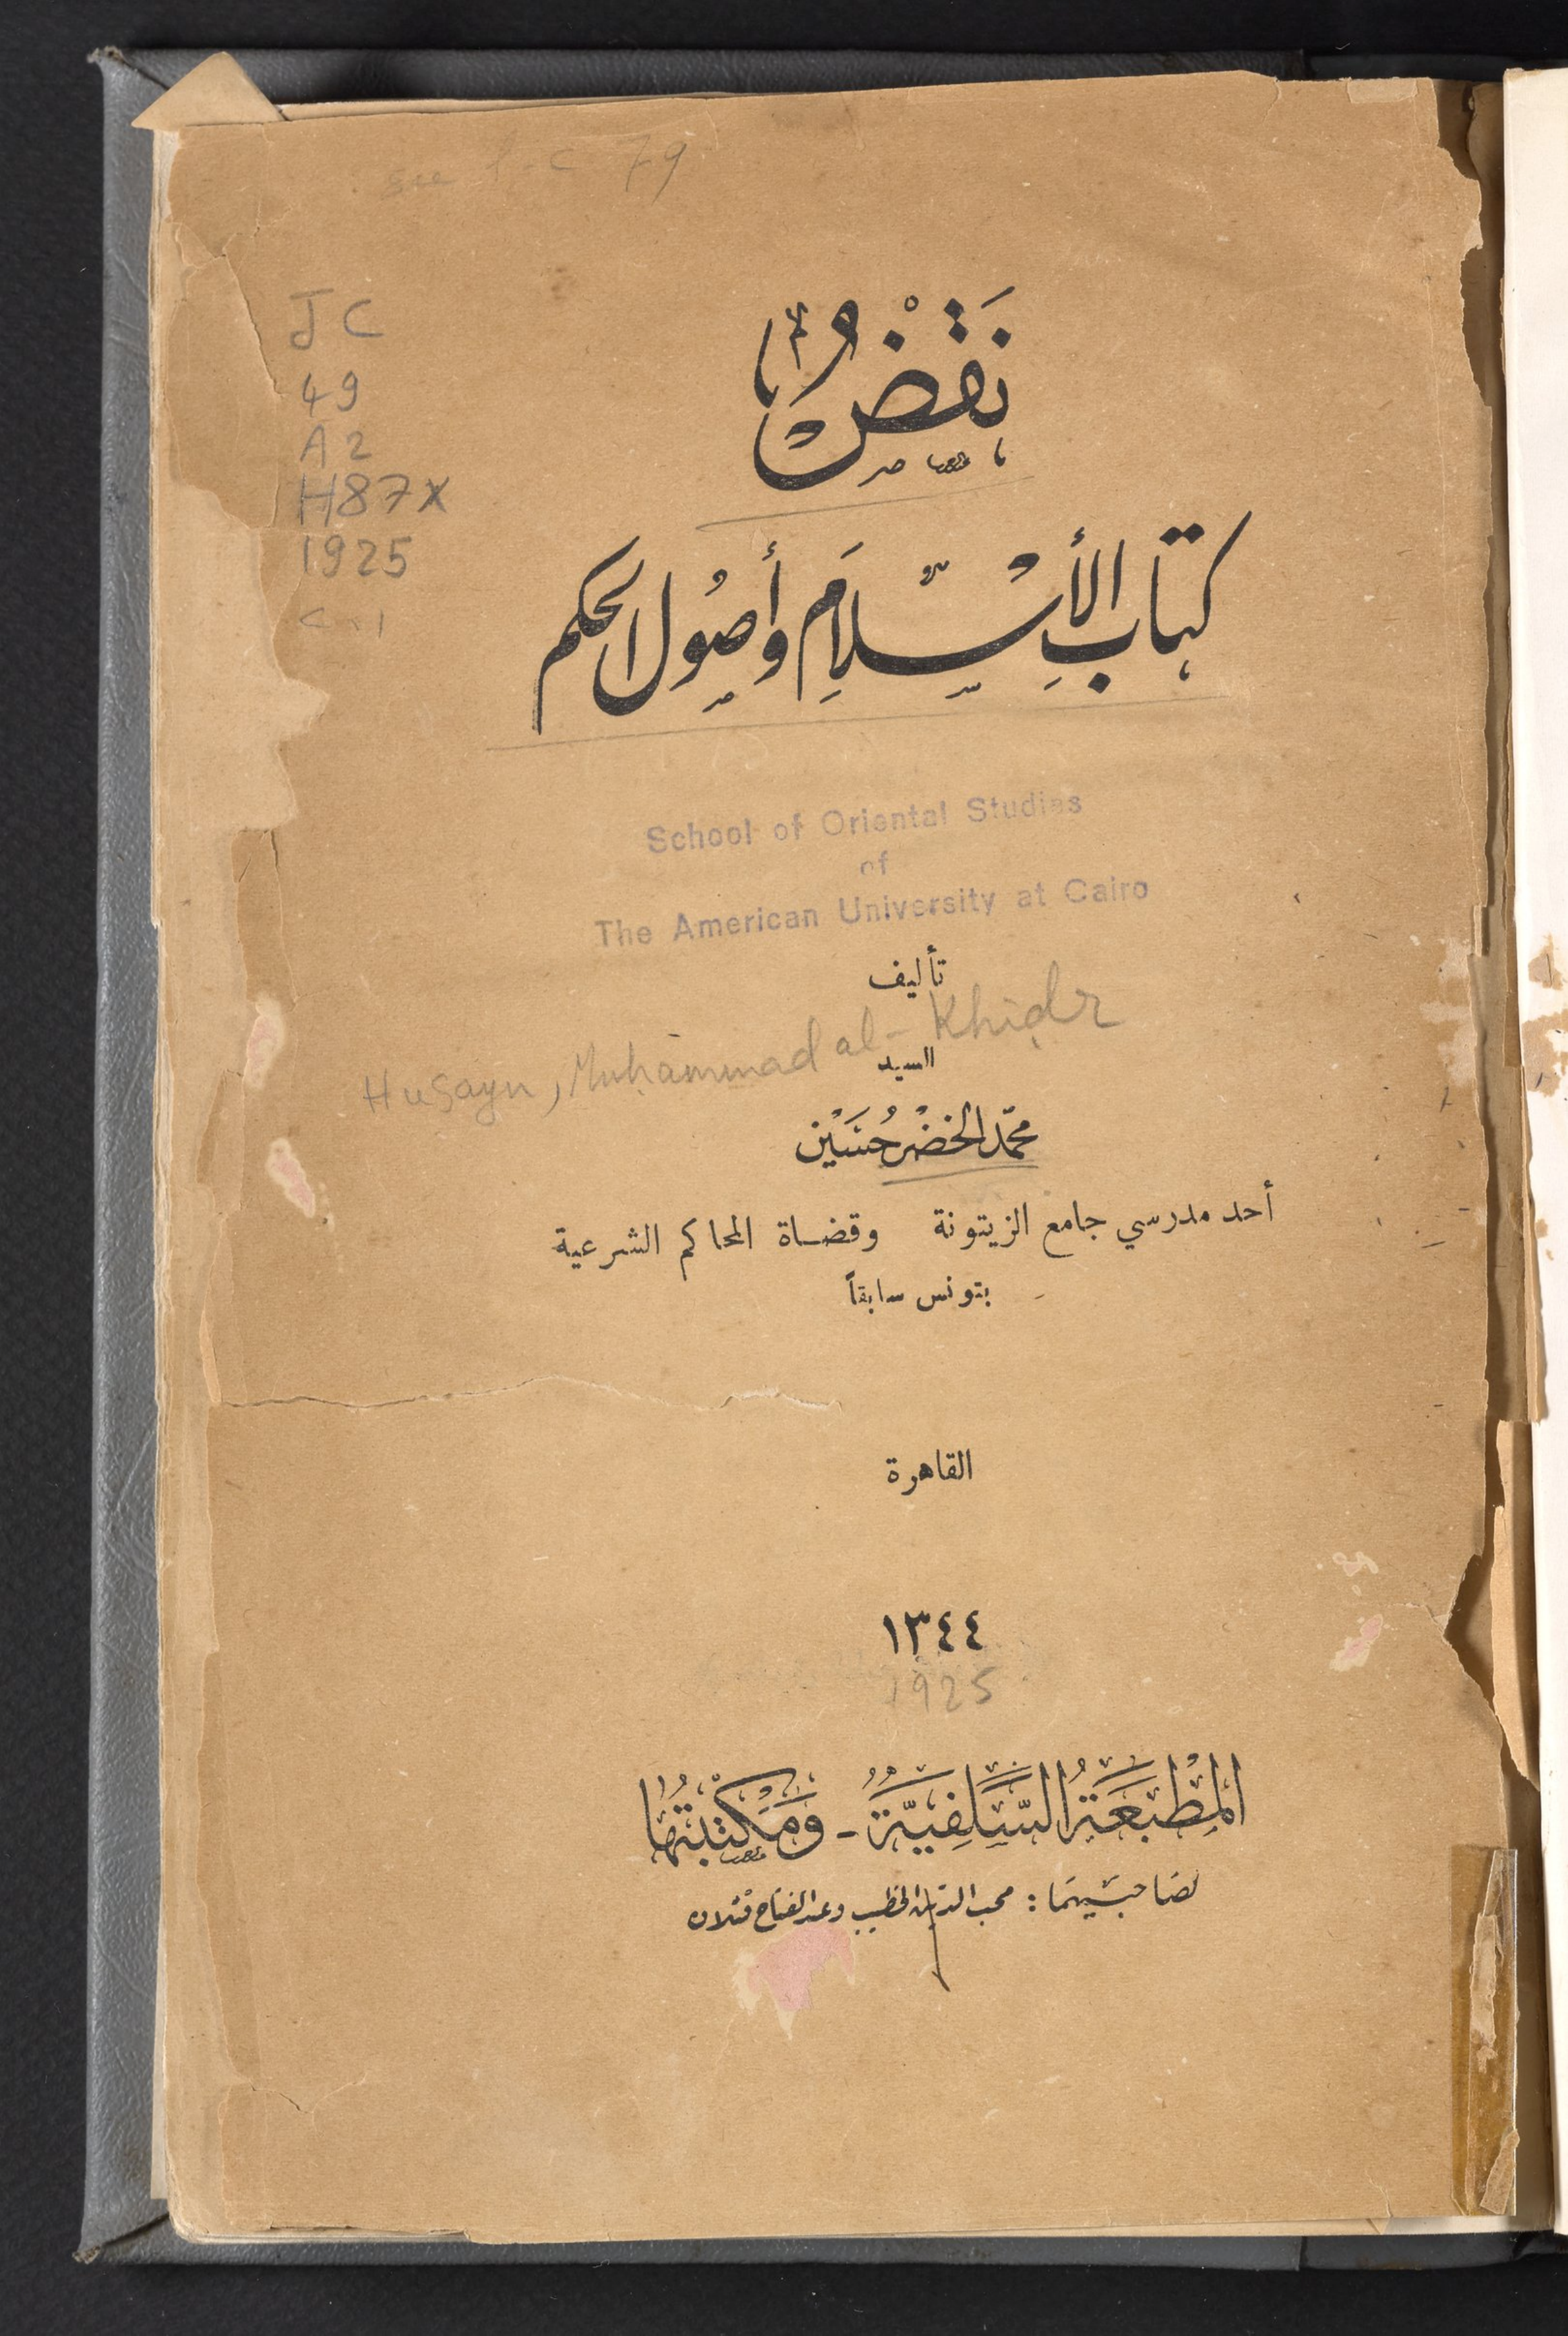 JC
49
A2
H87x
1925
c.1
نَقْضُ
كتاب الأسْلَام وأصُول الحكم
School of Oriental Studies
of
The American University at Cairo
تأليف
Husayn, Muḥammad al-Khiḍr
السيد
محمّد الخضْر حُسَيْن
أحد مدرسي جامع الزيتونة وقضاة المحاكم الشرعية
بتونس سابقاً
القاهرة
١٣٤٤
1925
المِطْبَعَةُ السَّلَفِيَّةُ - وَمَكْتَبَتُهَا
لصَاحبَيهمَا : محب الدين الخطيب وعبد الفتاح قتلان